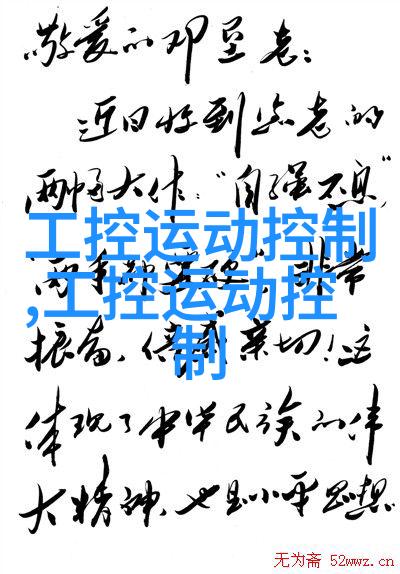 敬爱的邓垦老:
近日收到您老的
两幅大作:"自强不息",
工控运动控制
"两手都要硬",非常
,工控运动控
振奋、倍感亲切!这
制
体现了中华民族的伟
大精神,也是小平思想
无为斋 52wwz.cn